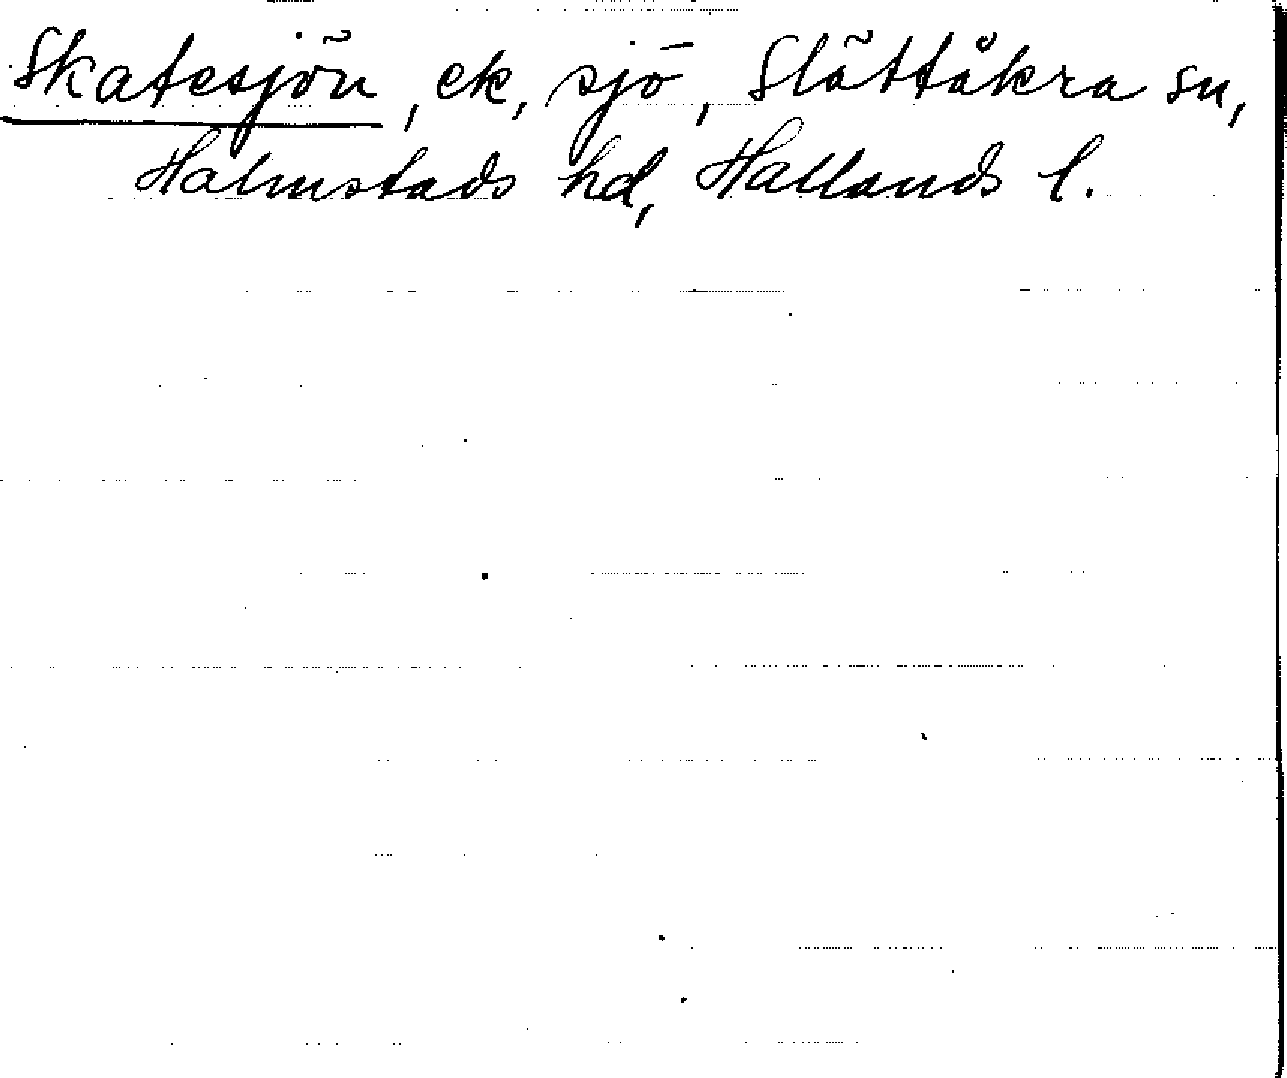 Skatesjön, ek, sjö, Slättåkra sn,
Halmstads hd, Hallands l.